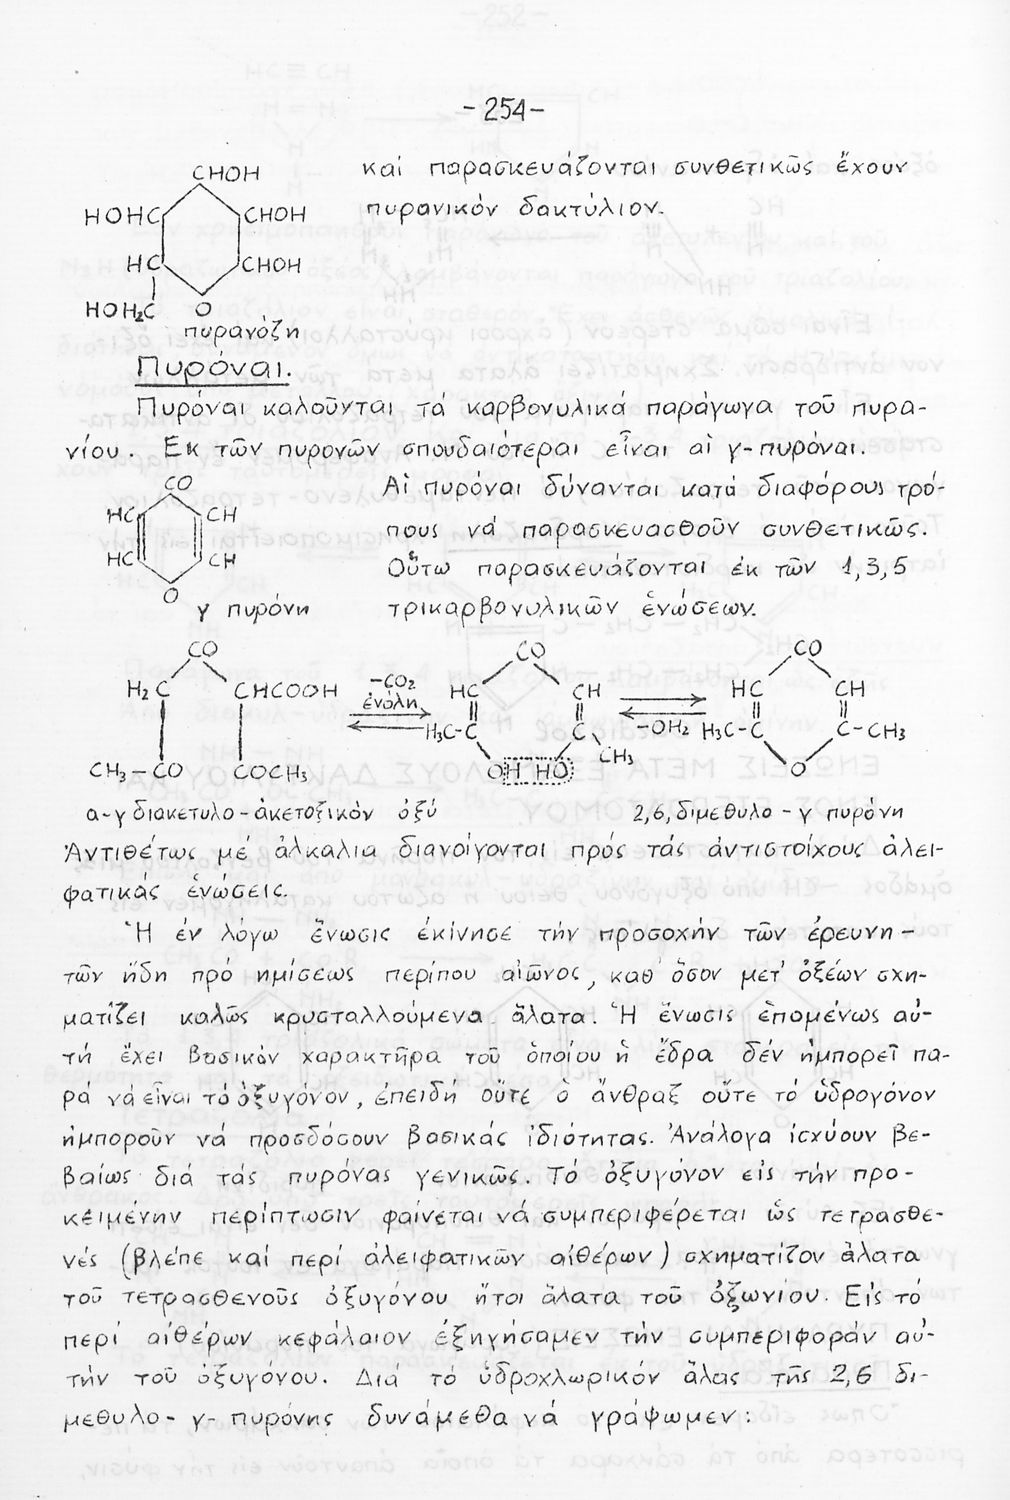 -254-
καί παρασκευάζονται συνθετικῶς ἔχουν
πυρανικόν δακτύλιον.
CHOH
HOHC CHOH
HC CHOH
HOH₂C O
πυρανόζη
Πυρόναι.
Πυρόναι καλοῦνται τά καρβονυλικά παράγωγα τοῦ πυρα-
νίου. Ἐκ τῶν πυρονῶν σπουδαιότεραι εἶναι αἱ γ-πυρόναι.
CO
HC CH
HC CH
O
γ πυρόνη
Αἱ πυρόναι δύνανται κατά διαφόρους τρό-
πους νά παρασκευασθοῦν συνθετικῶς.
Οὕτω παρασκευάζονται ἐκ τῶν 1,3,5
τρικαρβονυλικῶν ἑνώσεων.
CO CO CO
H₂C CHCOOH -CO₂ HC CH HC CH
ἐνόλη
H₃C-C C -OH₂ H₃C-C C-CH₃
CH₃
CH₃-CO COCH₃ OH HO O
α-γ διακετυλο-ἀκετοξικόν ὀξύ 2,6, διμεθυλο-γ πυρόνη
Ἀντιθέτως μέ ἀλκαλια διανοίγονται πρός τάς ἀντιστοίχους ἀλει-
φατικάς ἑνώσεις.
Ἡ ἐν λόγω ἕνωσις ἐκίνησε τήν προσοχήν τῶν ἐρευνη-
τῶν ἤδη πρό ημίσεως περίπου αἰῶνος, καθ' ὅσον μετ' ὀξέων σχη-
ματίζει καλῶς κρυσταλλούμενα ἅλατα. Ἡ ἕνωσις ἑπομένως αὐ-
τή ἔχει βασικόν χαρακτῆρα τοῦ ὁποίου ἡ ἕδρα δέν ἠμπορεῖ πα-
ρά νά εἶναι τό ὀξυγόνον, ἐπειδή οὔτε ὁ ἄνθραξ οὔτε τό ὑδρογόνον
ἠμποροῦν νά προσδόσουν βασικάς ἰδιότητας. Ἀνάλογα ἰσχύουν βε-
βαίως διά τάς πυρόνας γενικῶς. Τό ὀξυγόνον εἰς τήν προ-
κειμένην περίπτωσιν φαίνεται νά συμπεριφέρεται ὡς τετρασθε-
νές (βλέπε καί περί ἀλειφατικῶν αἰθέρων) σχηματίζον ἅλατα
τοῦ τετρασθενοῦς ὀξυγόνου ἤτοι ἅλατα τοῦ ὀξωνίου. Εἰς τό
περί αἰθέρων κεφάλαιον ἐξηγήσαμεν τήν συμπεριφοράν αὐ-
τήν τοῦ ὀξυγόνου. Διά τό ὑδροχλωρικόν ἅλας τῆς 2,6 δι-
μεθυλο-γ-πυρόνης δυνάμεθα νά γράψωμεν: